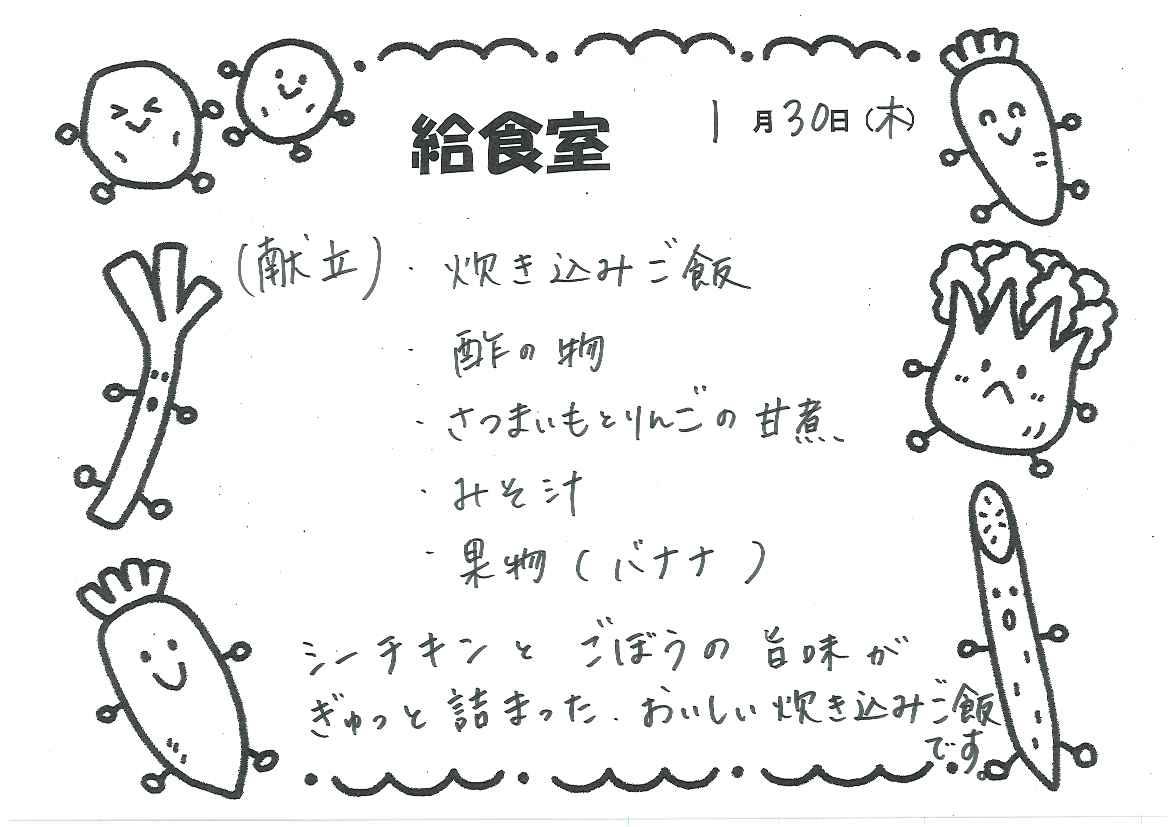 給食室
1月30日(木)
(献立)・炊き込みご飯
・酢の物
・さつまいもとりんごの甘煮
・みそ汁
・果物(バナナ)
シーチキンと ごぼうの旨味が
ぎゅっと詰まった、おいしい炊き込みご飯
です。